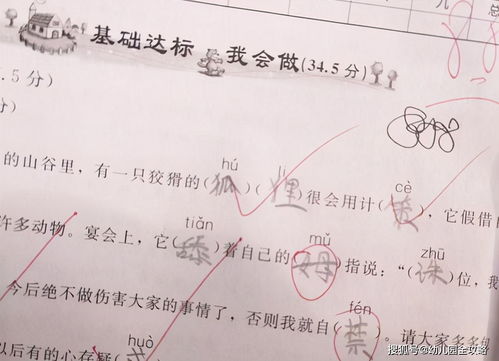 几
总
基础达标 我会做(34.5分)
.5分)
分)
hú lí cè
的山谷里，有一只狡猾的(狐)(狸)很会用计(策)，它假借
tiǎn mǔ zhū
许多动物。宴会上，它(舔)着自己的(母)指说：“(诛)位，我
fén
今后绝不做伤害大家的事情了，否则我就自(禁)。请大家多多
huò
以后有的心存疑(
搜狐号@幼儿园全攻略